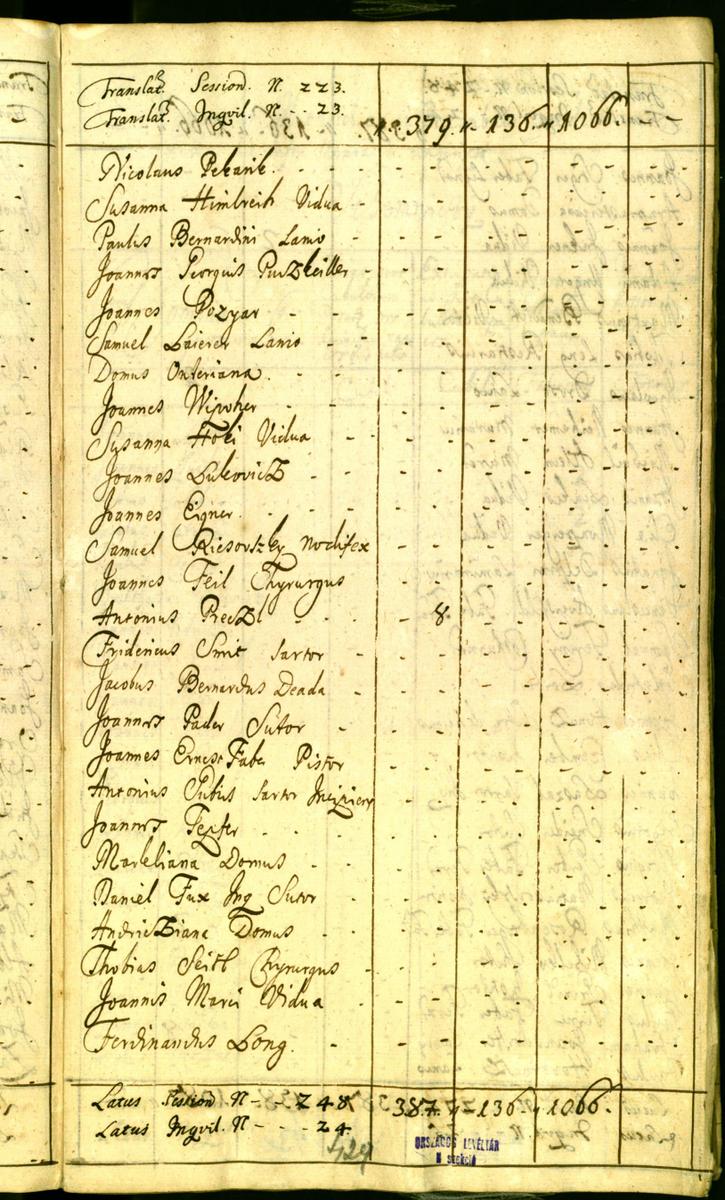 Translat. Session. N. 223.
Translat. Inqvil. N. - - 23. 379. 136. 1066. - -
Nicolaus Pekarik. - - -
Susanna Himlreich Vidua -
Paulus Bernardini Lanio -
Joannes Georgius -
Joannes Pozyar - - -
Samuel Baierer Lanio -
Domus - -
Joannes Wipoher - -
Susanna Holi Vidua -
Joannes Lukovicz - -
Joannes Eigner. - - -
Samuel Nodifex
Joannes Feil Chyrurgus -
Antonius Reczl - - - 8.
Fridericus Smit Sartor -
Jacobus Bernardus Deada -
Joannes Pader Sutor -
Joannes Ernest Faber Pistor
Antonius Sartor
Joannes - - -
Markliana Domus -
Daniel Fux Inq Sutor -
Andricziana Domus -
Thobias Seitl Chyrurgus -
Joannis Marci Vidua -
Ferdinandus Long. -
Latus Session N - - 248 387. 136. 1066.
Latus Inqvil. N - - - 24
429
ORSZÁGOS LEVÉLTÁR
N szekció